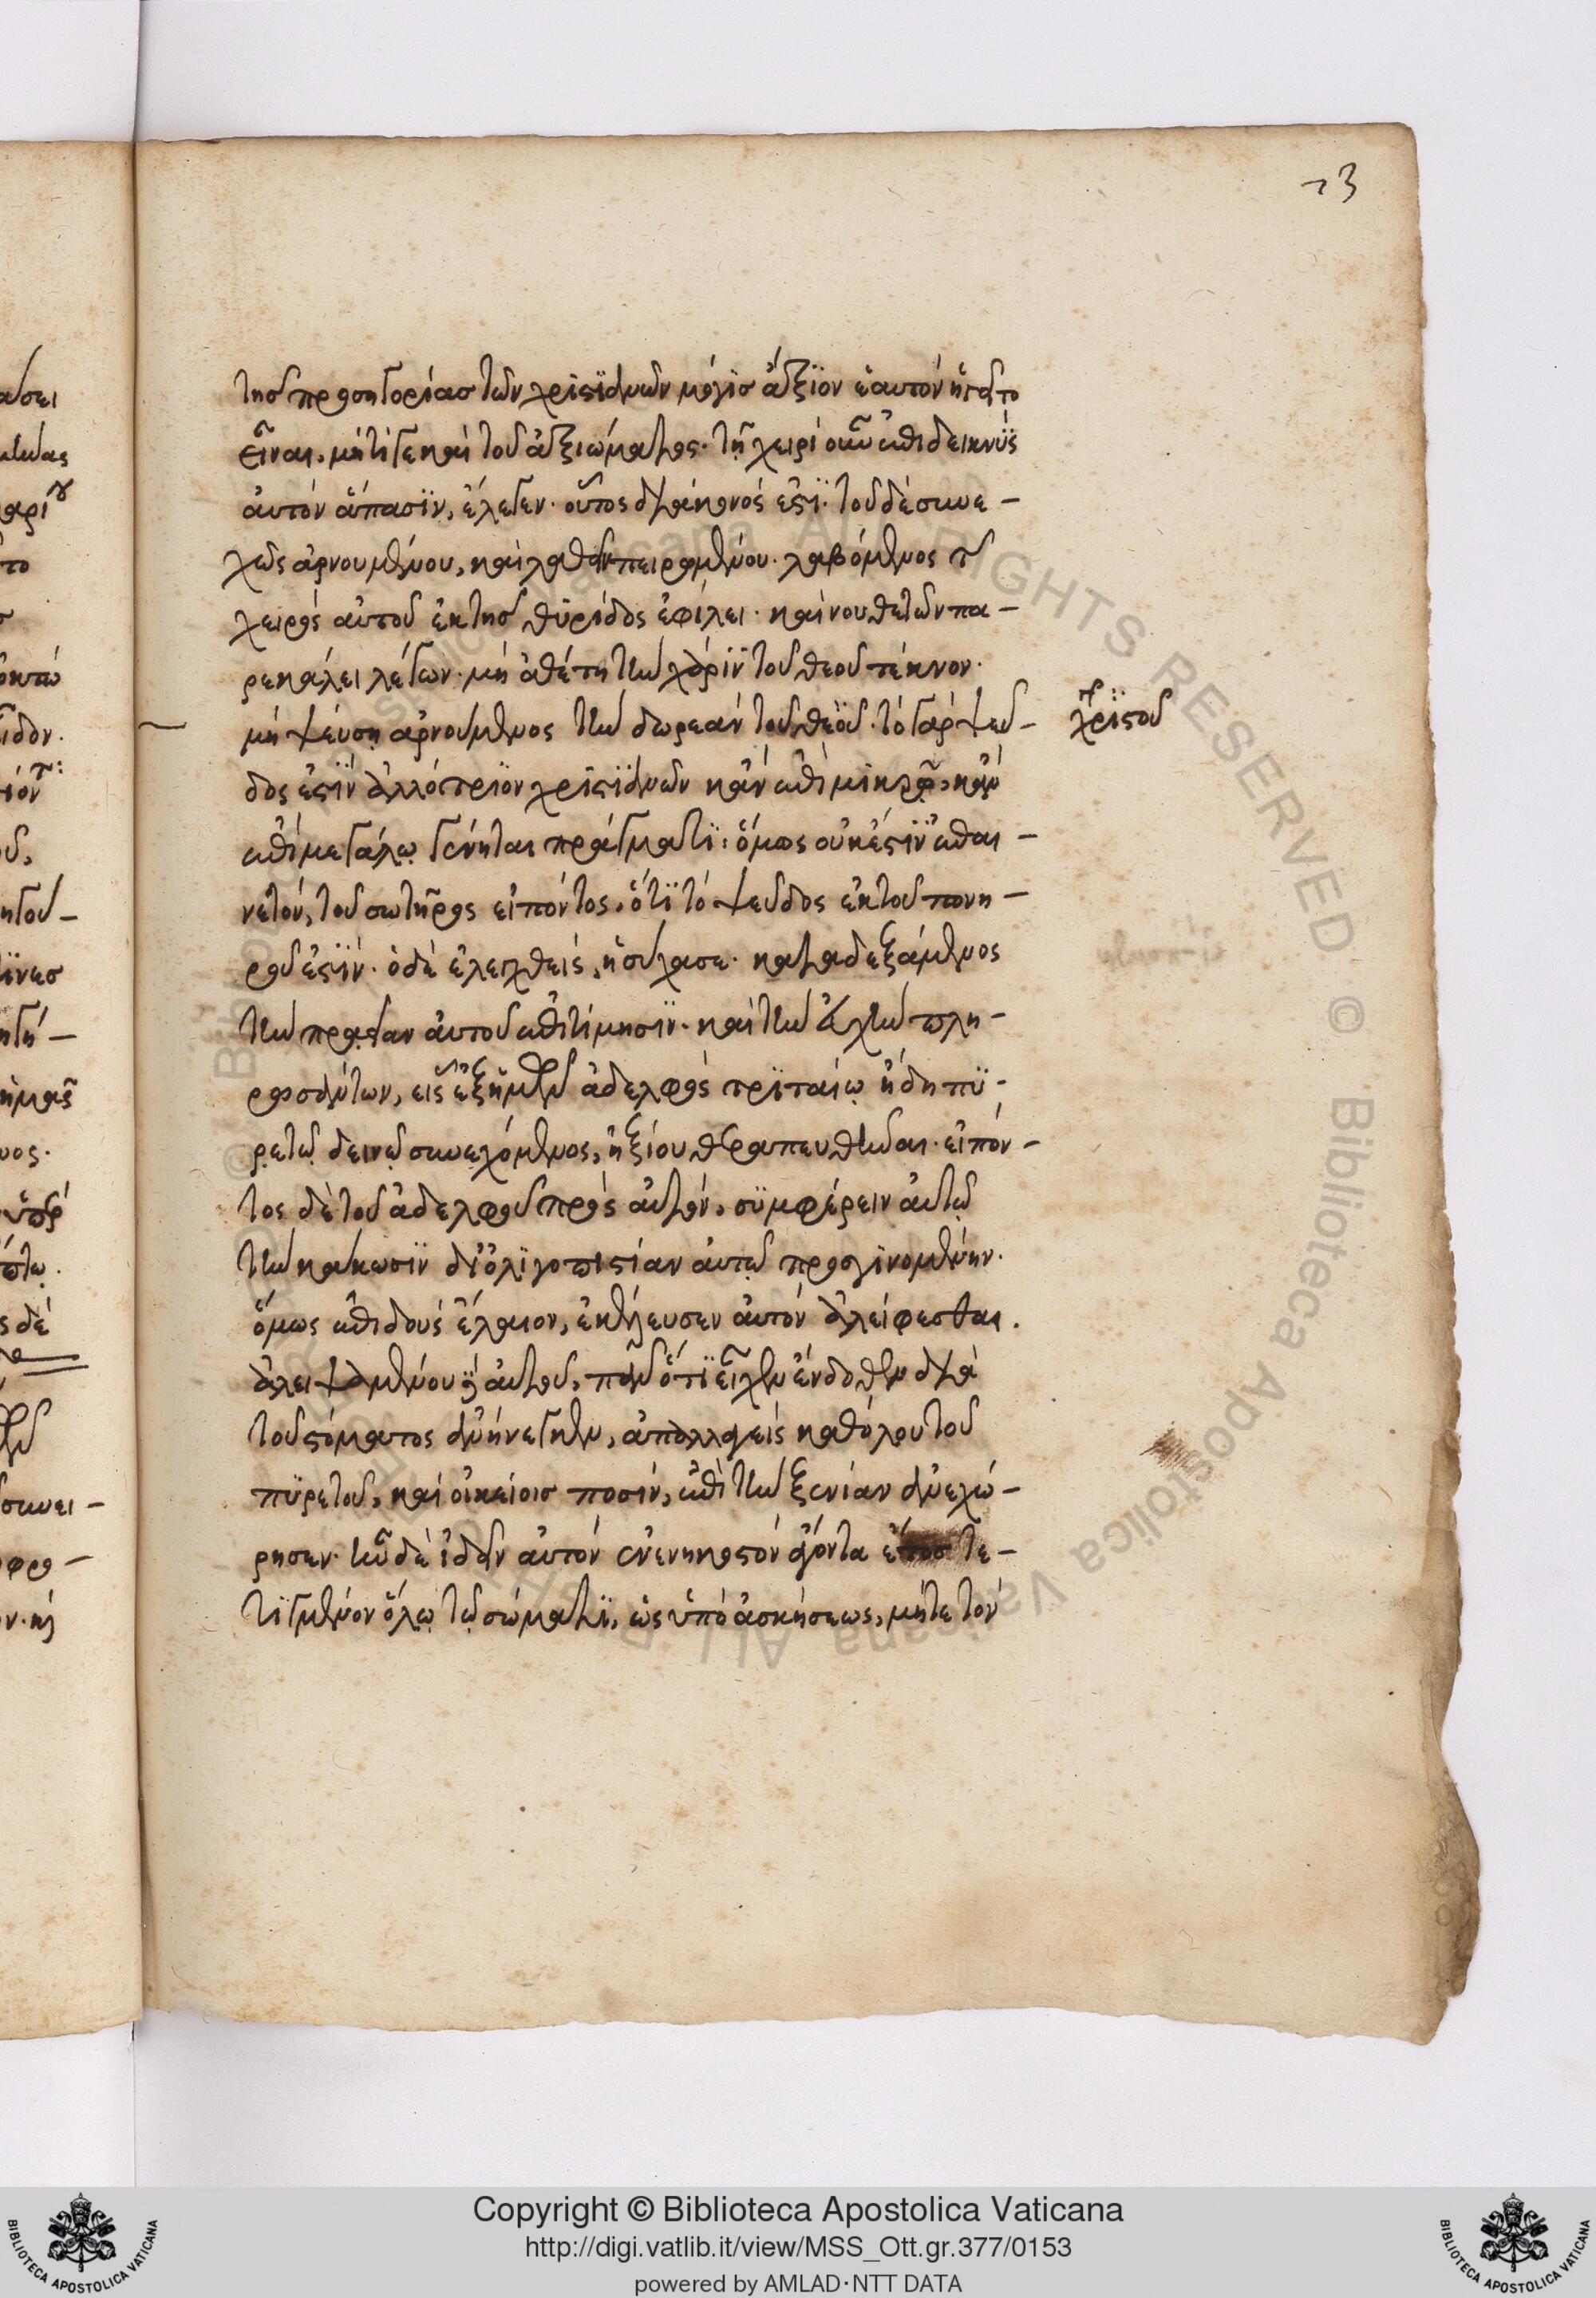 73
τῆς προσηγορίας τῶν χριστϊανῶν μόγις ἄξϊον ἑαυτὸν ἡγεῖτο
εἶναι, μήτι γε καὶ τοῦ ἀξιώματος. τῇ χειρὶ οὖν ἐπιδεικνῢς
αὐτὸν ἅπασϊν, ἔλεγεν. οὗτος διάκονός ἐστϊ. τοῦ δὲ συνε-
χῶς ἀρνουμένου, καὶ λαθεῖν πειρωμένου. λαβόμενος τῆς
χειρὸς αὐτοῦ ἐκ τῆς θυρίδος ἐφίλει. καὶ νουθετῶν πα-
ρεκάλει λέγων. μὴ ἀθέτῃ τὴν χάρϊν τοῦ θεοῦ τέκνον.
μὴ ψεύσῃ ἀρνούμενος τὴν δωρεὰν τοῦ θεοῦ. τὸ γὰρ ψεῦ-
χριστοῦ
δος ἐστϊν ἀλλότρϊον χριστϊανῶν κἂν ἐπὶ μικρῷ, κἂν
ἐπὶ μεγάλῳ γένηται πράγματϊ. ὅμως οὐκ ἔστϊν ἐπαι-
νετόν, τοῦ σωτῆρος εἰπόντος, ὅτϊ τὸ ψεῦδος ἐκ τοῦ πονη-
ροῦ ἐστϊν. ὁ δὲ ἐλεγχθεὶς, ἡσύχασε. καταδεξάμενος
τὴν πρᾳεῖαν αὐτοῦ ἐπιτίμησϊν. καὶ τὴν εὐχὴν πλη-
ρωσάντων, εἷς ἐξ ἡμῶν ἀδελφὸς τρϊταίῳ ἤδη πϋ-
ρετῷ δεινῷ συνεχόμενος, ἠξίου θεραπευθῆναι. εἰπόν-
τος δὲ τοῦ ἀδελφοῦ πρὸς αὐτὸν, συμφέρειν αὐτῷ
τὴν κάκωσϊν δι' ὀλϊγοπιστίαν αὐτῷ προσγϊνομένην.
ὅμως ἐπιδοὺς ἔλαιον, ἐκέλευσεν αὐτὸν ἀλείφεσθαι.
ἀλειψαμένου αὐτοῦ, πᾶν ὅτϊ εἶχεν ἔνδοθεν διὰ
τοῦ στόματος ἀνήνεγκεν, ἀπαλλαγεὶς καθόλου τοῦ
πϋρετοῦ, καὶ οἰκείοις ποσὶν, ἐπὶ τὴν ξενίαν ἀνεχώ-
ρησεν. ἦν δὲ ἰδεῖν αὐτὸν ἐνενηκοστὸν ἄγοντα ἔτος τε-
τηγμένον ὅλῳ τῷ σώματϊ, ὡς ὑπὸ ἀσκήσεως, μήτε τὸν
Copyright © Biblioteca Apostolica Vaticana
http://digi.vatlib.it/view/MSS_Ott.gr.377/0153
powered by AMLAD·NTT DATA